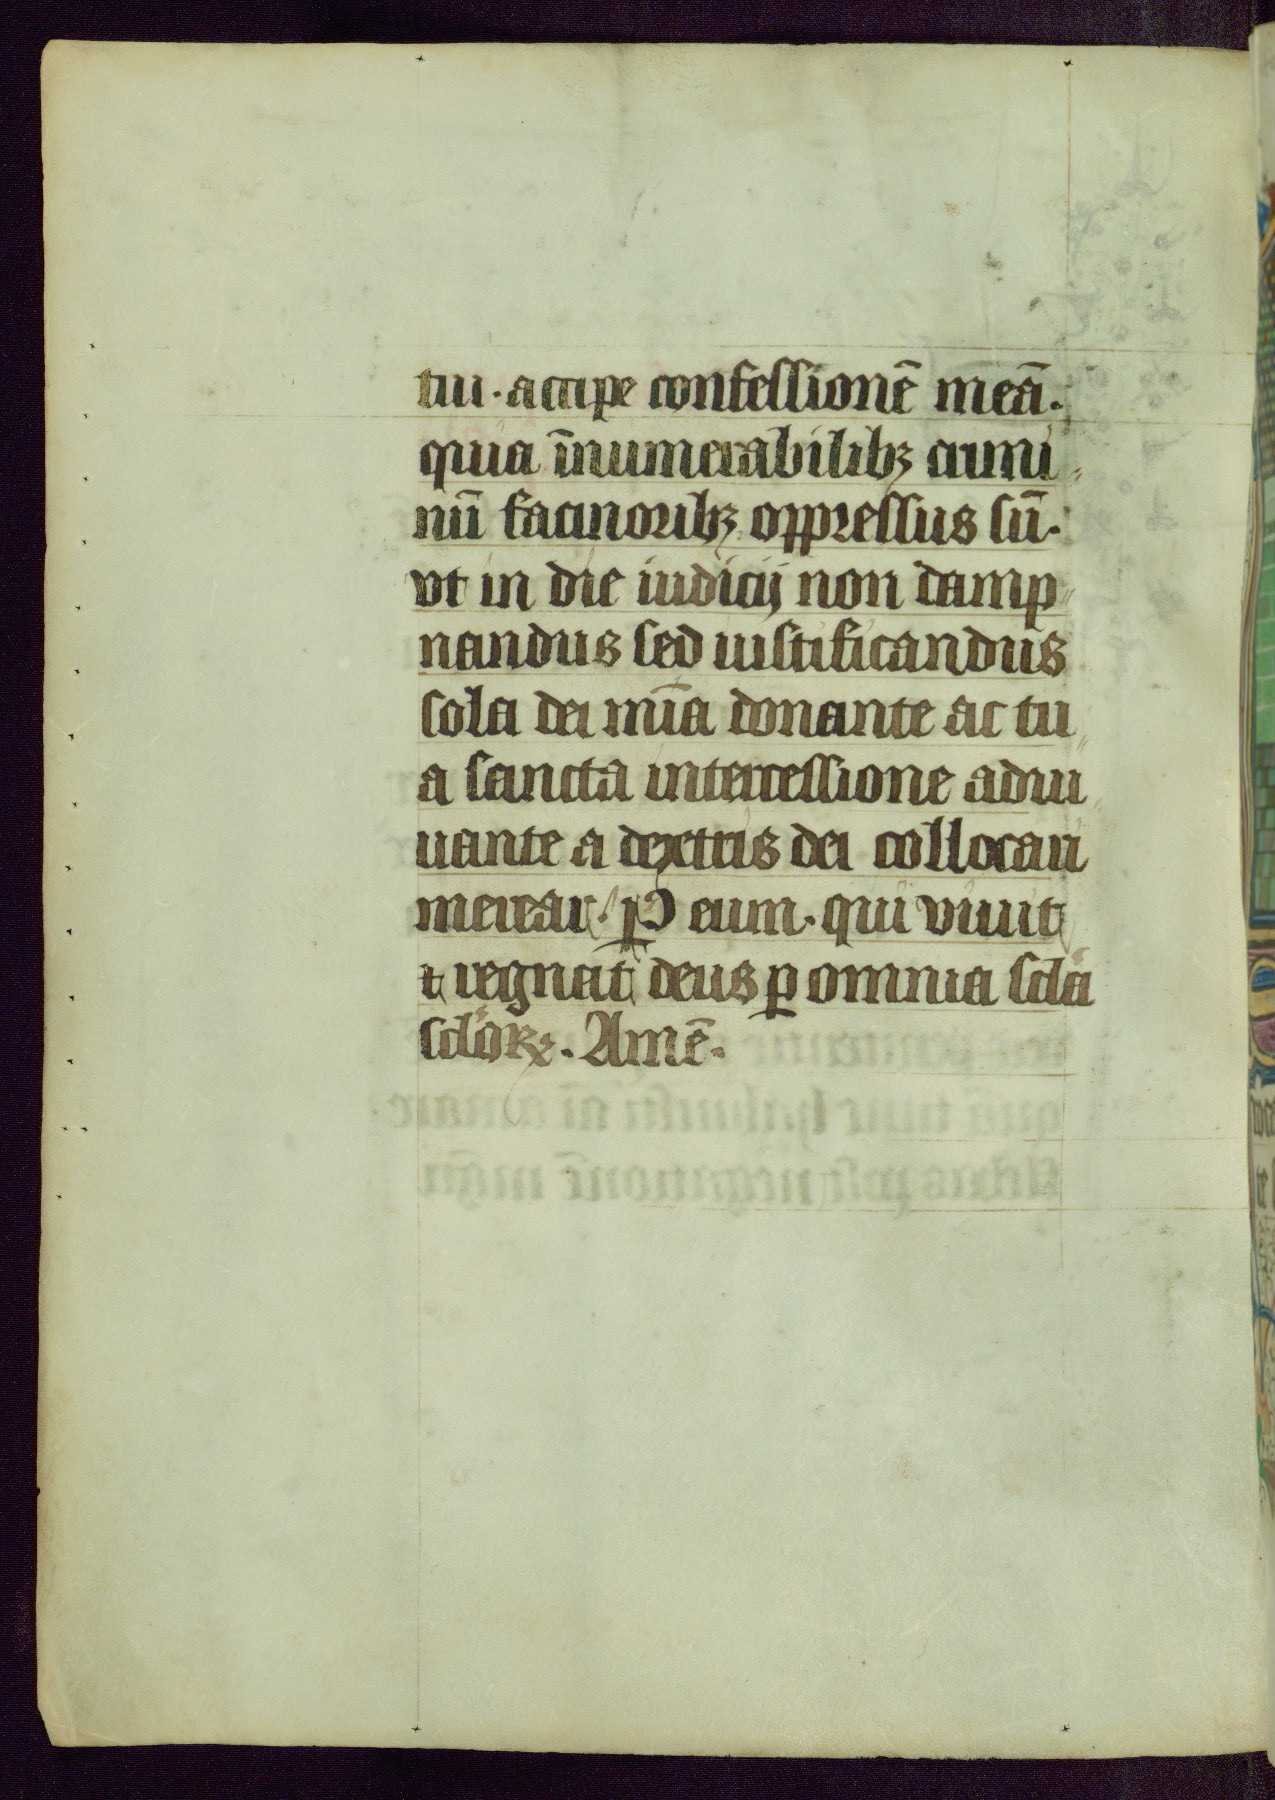 tui · accipe confessionē meā.
quia īnumerabilibꝫ crimi
nū facinoribꝫ oppressus sū.
vt in die iudicij non damp
nandus sed iustificandus
sola dei mīa donante ac tu
a sancta intercessione adiu
uante a dextris dei collocari
merear. P eum. qui viuit
⁊ regnat deus ꝑ omnia scl̄a
scl̄oꝝ. Amē.